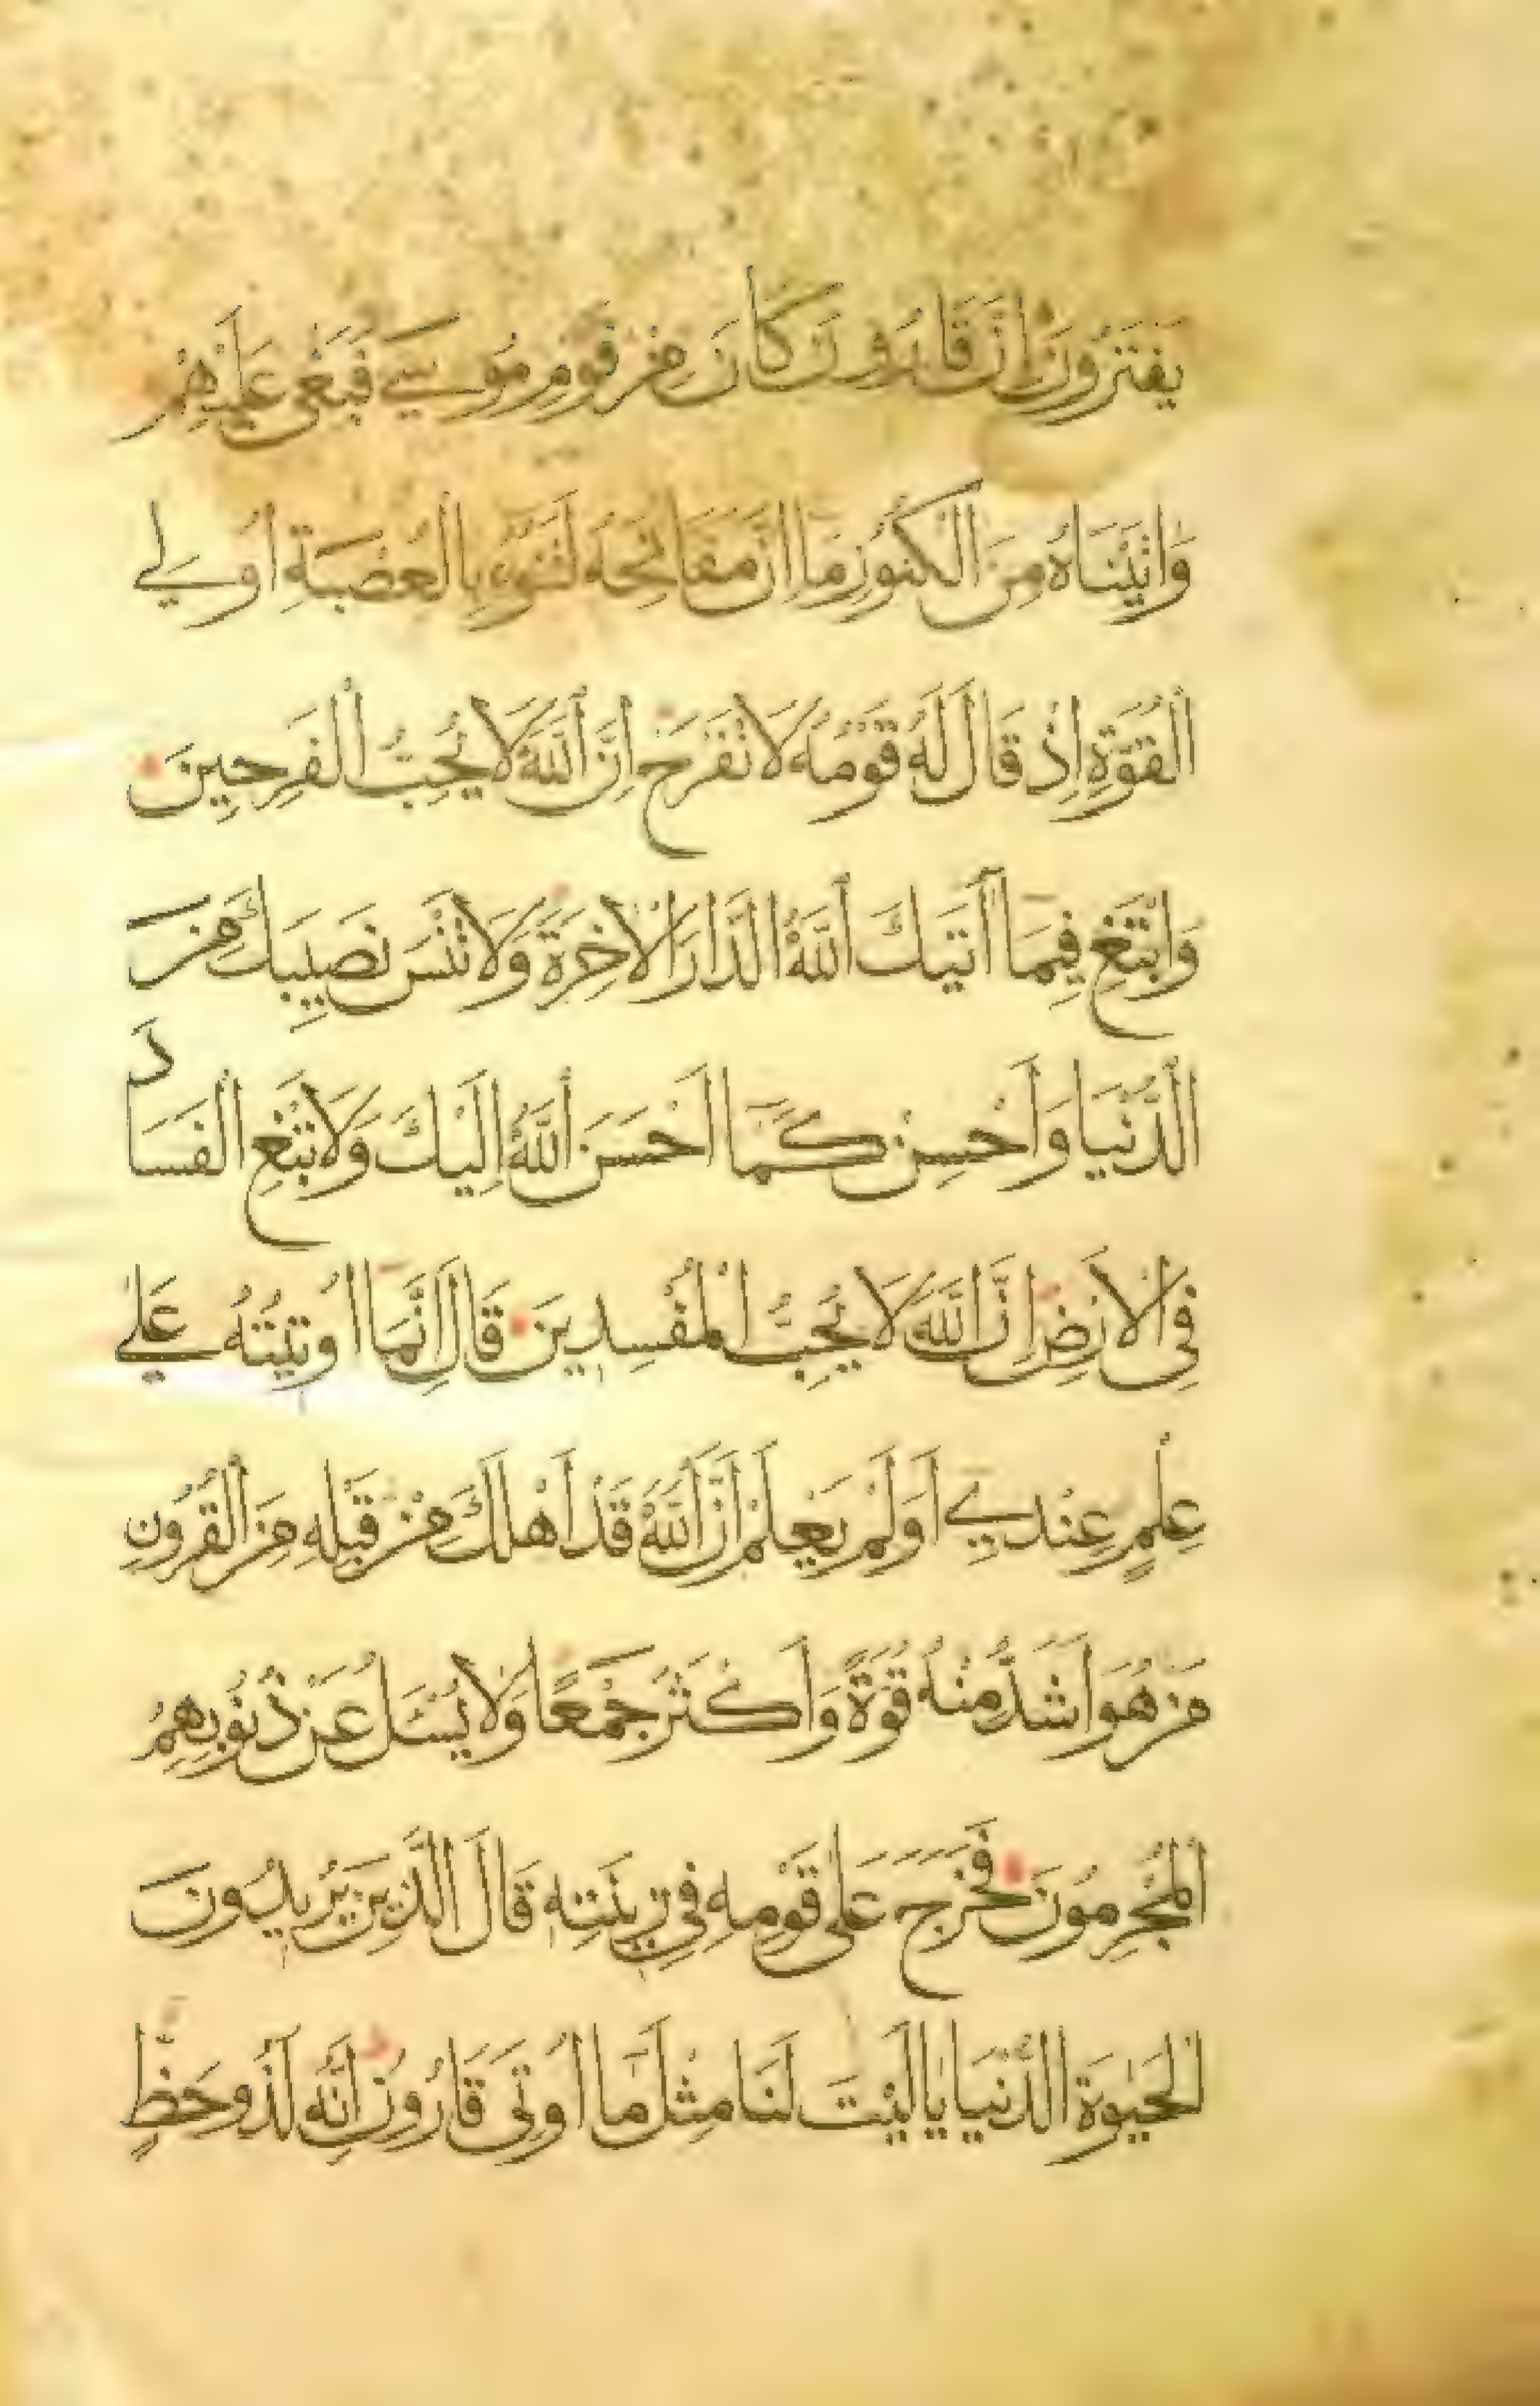 يَفْتَرُونَ اِنَّ قَارُونَ كَانَ مِنْ قَوْمِ مُوسٰي فَبَغٰى عَلَيْهِمْ
وَاٰتَيْنَاهُ مِنَ الْكُنُوزِ مَا اِنَّ مَفَاتِحَهُ لَتَنُوءُ بِالْعُصْبَةِ اُولِي
الْقُوَّةِ اِذْ قَالَ لَهُ قَوْمُهُ لَا تَفْرَحْ اِنَّ اللّٰهَ لَا يُحِبُّ الْفَرِحِينَ
وَابْتَغِ فِيمَا اٰتٰيكَ اللّٰهُ الدَّارَ الْاٰخِرَةَ وَلَا تَنْسَ نَصِيبَكَ مِنَ
الدُّنْيَا وَاَحْسِنْ كَمَا اَحْسَنَ اللّٰهُ اِلَيْكَ وَلَا تَبْغِ الْفَسَادَ
فِى الْاَرْضِ اِنَّ اللّٰهَ لَا يُحِبُّ الْمُفْسِدِينَ قَالَ اِنَّمَا اُوتِيتُهُ عَلٰي
عِلْمٍ عِنْدِي اَوَلَمْ يَعْلَمْ اَنَّ اللّٰهَ قَدْ اَهْلَكَ مِنْ قَبْلِهِ مِنَ الْقُرُونِ
مَنْ هُوَ اَشَدُّ مِنْهُ قُوَّةً وَاَكْثَرُ جَمْعًا وَلَا يُسْـَٔلُ عَنْ ذُنُوبِهِمُ
الْمُجْرِمُونَ فَخَرَجَ عَلٰى قَوْمِهِ فِى زِينَتِهِ قَالَ الَّذِينَ يُرِيدُونَ
الْحَيٰوةَ الدُّنْيَا يَا لَيْتَ لَنَا مِثْلَ مَا اُوتِىَ قَارُونُ اِنَّهُ لَذُو حَظٍّ